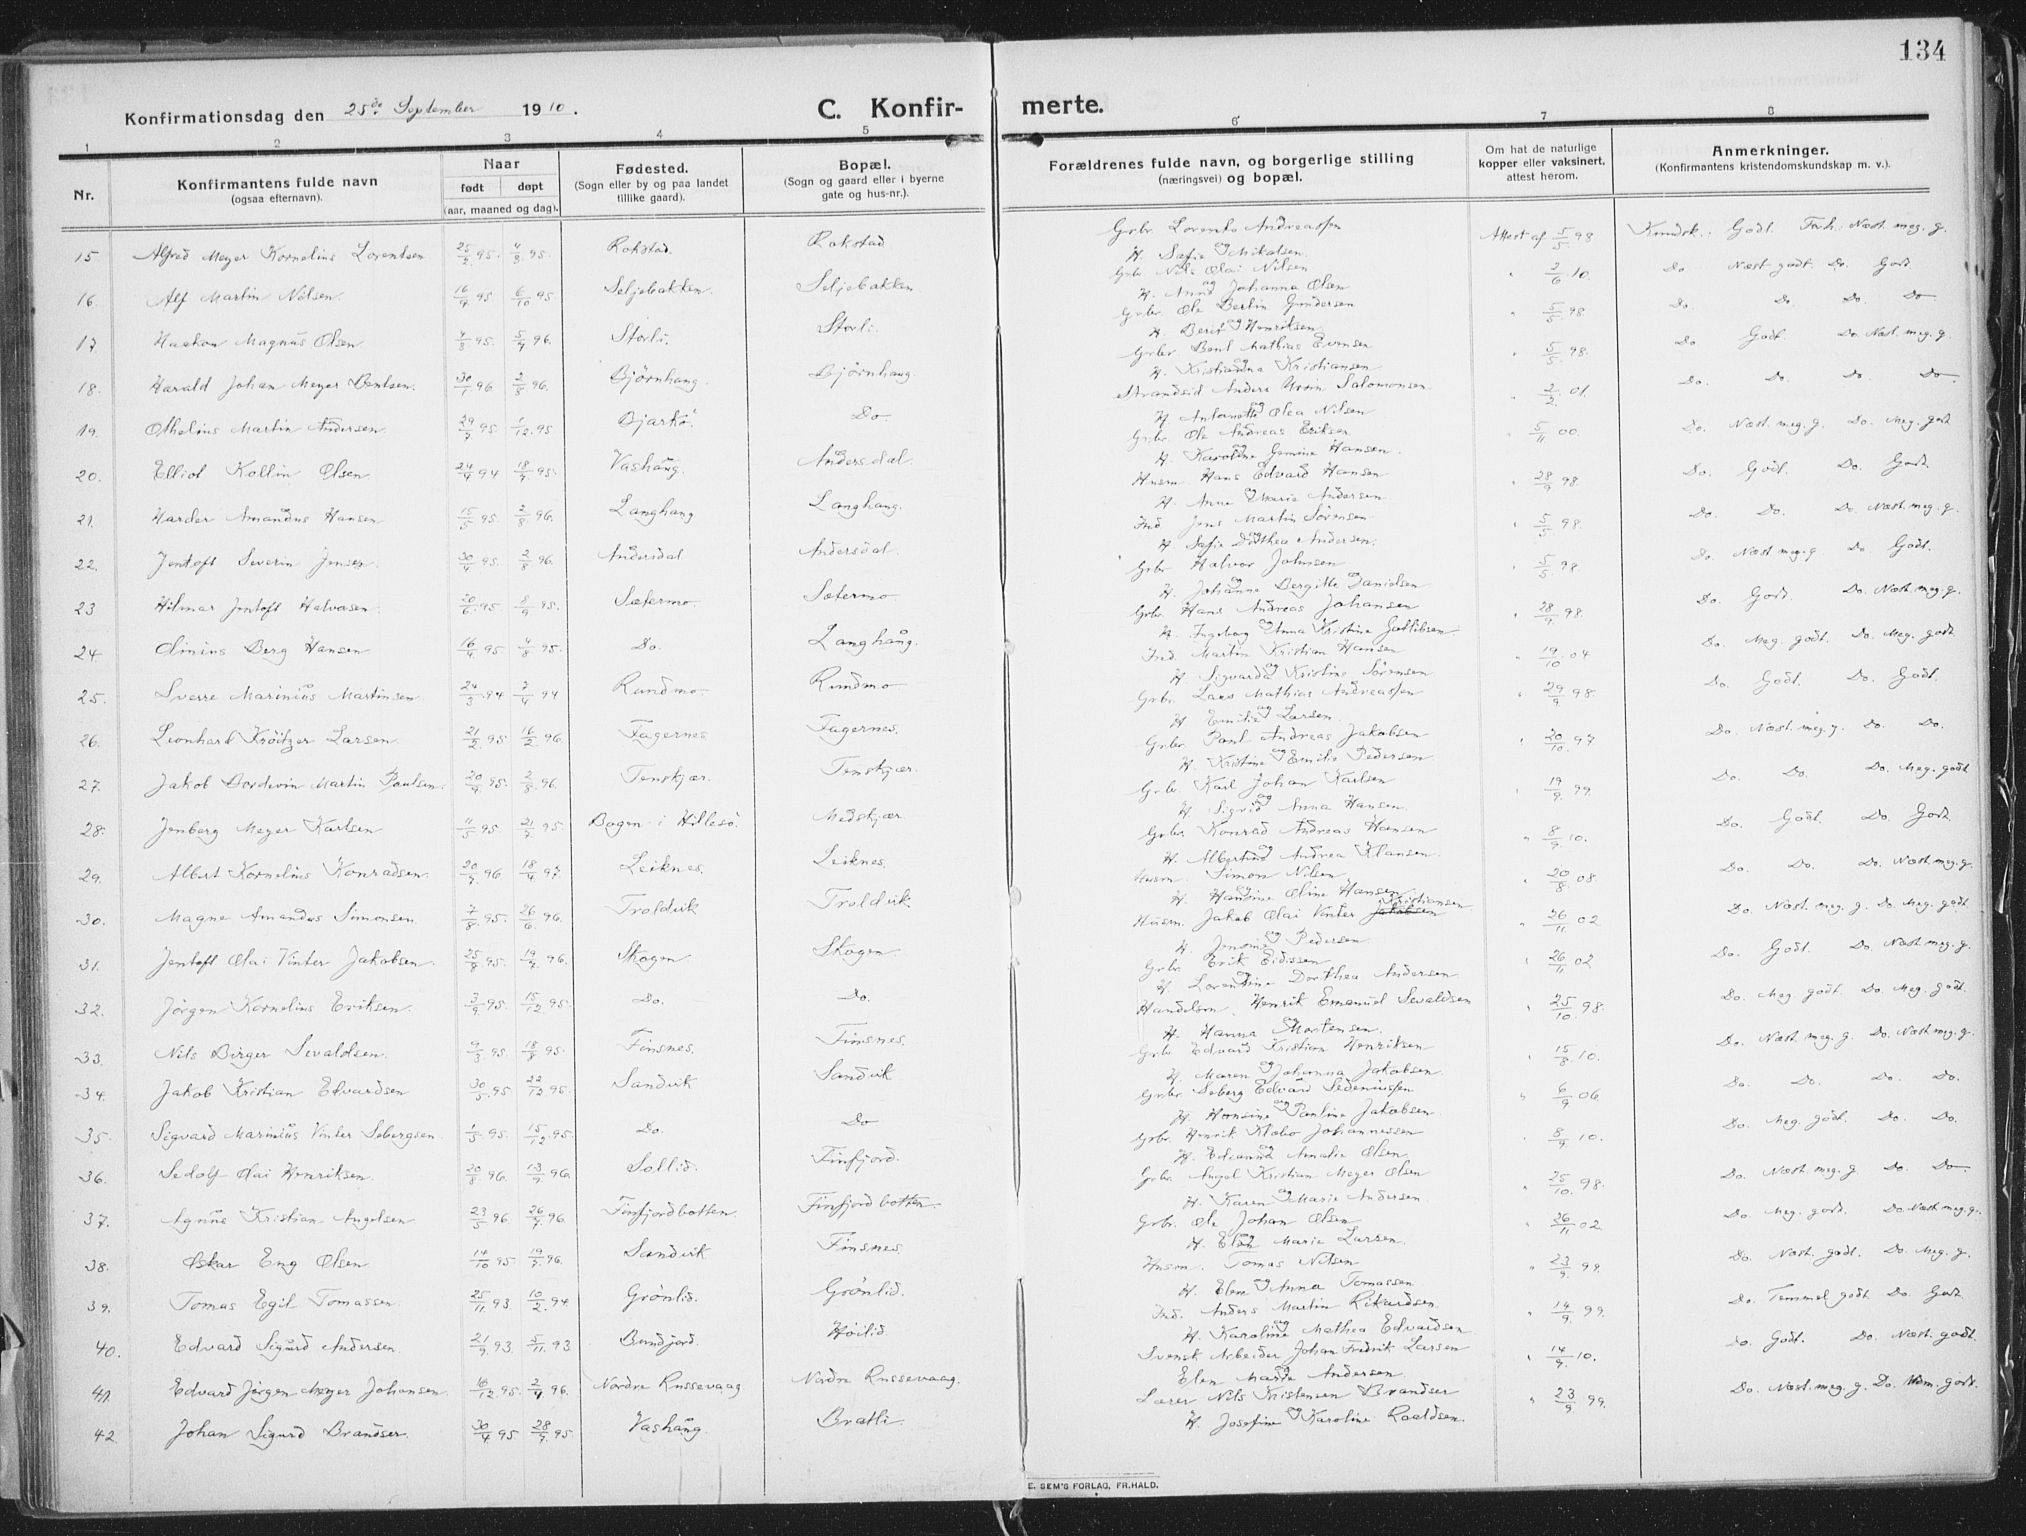 134
Konfirmationsdag den 25de September 1910.
C. Konfir- merte.
1 2 3 4 5 6 7 8
Nr. Konfirmantens fulde navn (ogsaa efternavn). Naar født døpt (aar, maaned og dag). Fødested. (Sogn eller by og paa landet tillike gaard). Bopæl. (Sogn og gaard eller i byerne gate og hus-nr.). Forældrenes fulde navn, og borgerlige stilling (næringsvei) og bopæl. Om hat de naturlige kopper eller vaksinert, attest herom. Anmerkninger. (Konfirmantens kristendomskundskap m. v.).
15 Alfred Meyer Kornelius Lorentsen 25/2 95. 4/8 95. Rokstad. Rokstad Grbr. Lorents Andreassen og H. Sofie Mikalsen. Attest af 5/5 98 Kundsk.: Godt. Forh.: Næst meg. g.
16. Alf Martin Nilsen. 16/9 95 6/10 95 Seljebakken. Seljebakken. Grbr. Nils Olai Nilsen og H. Anna Johanna Olsen " 2/6 10. Do Næst godt. Do. Godt
17. Haakon Magnus Olsen 4/8 95. 5/9 96. Storli. Storli. Grbr. Ole Bertin Gundersen og H. Berit Henriksen. " 5/5 98. Do. Do. Do. Do
18. Harald Johan Meyer Bentsen. 30/1 96 2/8 96. Bjørnhaug. Bjørnhaug. Grbr. Bent Mathias Evensen og H. Kristianna Kristiansen " 5/5 98. Do Godt. Do. Næst. meg. g.
19. Othelius Martin Andersen. 29/9 95. 1/12 95 Bjarkö. Do Strandsid. Anders Salomonsen og H. Antonette Olea Nilsen " 2/2 01. Do. Do. Do. Do.
20. Elliot Kollin Olsen. 24/4 94 18/7 95. Vashaug. Andersdal. Grbr. Ole Andreas Eriksen og H. Karoline Hansen. " 5/11 00. Do. Næst. meg. g. Do. Meg. godt
21. Harder Amandus Hansen 15/5 95. 2/8 96. Langhaug Langhaug. Husm. Hans Edvard Hansen og H. Anne Marie Andersen " 28/9 98. Do. Godt. Do. Godt.
22. Jentoft Severin Jensen. 30/4 95. 2/8 96. Andersdal Andersdal. Ind. Jens Martin Sörensen og H. Sofie Dorthea Andersen. " 5/5 98. Do. Do. Do. Næst meg. g.
23 Hilmar Jentoft Halvorsen. 20/6 95 8/9 95. Sætermo. Sætermo Grbr. Halvor Johnsen og H. Johanne Bergitte Danielsen " 5/5 98. Do. Næst meg. g. Do Godt.
24. Berg Hansen 16/4 95 4/8 95. Do. Langhaug. Grbr. Hans Andreas Johansen og H. Ingeborg Anna Kristine Gottlibsen " 28/9 98. Do. Godt. Do. Næst meg. g.
25. Sverre Marinius Martinsen 24/3 94 7/4 94 Rundmo. Rundmo Ind. Martin Kristian Hansen og H. Sigvarda Kristine Sörensen " 19/10 04 Do. Meg. godt. Do. Meg. godt
26. Leonhard Kröitzer Larsen. 21/2 95 16/2 96. Fagernes Fagernes. Grbr. Lars Mathias Andreassen og H. Emilie Larsen. " 29/9 98. Do. Godt. Do. Godt.
27. Jakob Bordevin Martin Paulsen. 20/9 95. 2/8 96. Tenskjær. Tenskjær. Grbr. Paul Andreas Jakobsen og H. Kristine Emilie Pedersen " 20/10 97 Do. Næst. meg. g. Do. Do.
28. Jenberg Meyer Karlsen 11/5 95. 21/7 95 Bogen i Hillesö. Medskjær Grbr. Karl Johan Karlsen og H. Sigrid Anna Hansen. " 19/9 99. Do. Do. Do. Meg. godt
29. Albert Kornelius Konradsen. 20/7 96 18/4 97. Leiknes. Leiknes. Grbr. Konrad Andreas Hansen og H. Albertine Andrea Klausen. " 8/9 10. Do. Godt. Do. Godt.
30. Magne Amandus Simonsen. 7/8 95. 26/6 96. Troldvik Troldvik Husm. Simon Nilsen og H. Hansine Oline Hansen " 20/8 08. Do. Do. Do. Næst meg. g.
31. Jentoft Olai Vinter Jakobsen. 25/9 95. 19/7 96. Skogen Skogen Husm. Jakob Olai Vinter Jakobsen Kristiansen og H. Jensine Pedersen " 26/11 02 Do. Næst. meg. g. Do. Meg. godt.
32. Jörgen Kornelius Eriksen. 3/9 95. 15/12 95. Do. Do. Grbr. Erik Eidissen og H. Lorentine Dorthea Andersen " 26/11 02 Do. Godt. Do. Næst meg. g.
33. Nils Birger Sevaldsen. 9/3 95. 18/8 95. Finsnes. Finsnes. Handelsm. Henrik Emanuel Sevaldsen og H. Hanna Mortensen. " 25/10 98. Do. Meg. godt. Do. Meg. godt.
34. Jakob Kristian Edvardsen 30/5 95 22/12 95. Sandvik Sandvik Grbr. Edvard Kristian Henriksen og H. Maren Johanna Jakobsen. " 15/8 10. Do. Næst. meg. g. Do. Næst meg. g.
35. Sigvard Marinius Vinter Sebergsen. 1/5 95. 15/12 95. Do. Do Grbr. Seberg Edvard Sedeniussen og H. Hansine Pauline Jakobsen. " 6/9 06. Do. Do. Do. Do.
36. Sedolf Olai Henriksen. 20/8 96. 13/9 96. Sollid. Finfjord. Grbr. Henrik Klæbo Johannessen og H. Edianna Amalie Olsen " 8/9 10. Do. Meg. godt. Do. Do.
37. Agnus Kristian Angelsen 23/5 96 26/7 96. Finfjordbotten Finfjordbotten. Grbr. Angel Kristian Meyer Olsen og H. Karen Marie Andersen " 25/10 98. Do. Næst. meg. g. Do. Do
38. Oskar Eng Olsen 14/10 95 19/7 96. Sandvik Finsnes. Grbr. Ole Johan Olsen og H. Elen Marie Larsen. " 26/11 02 Do. Meg. godt. Do. Næst meg. g.
39. Tomas Egil Tomassen. 25/11 93. 10/2 94 Grönlid. Grönlid. Husm. Tomas Nilsen og H. Elen Anna Tomassen " 23/9 99. Do. Næst. godt. Do. Meg. g.
40. Edvard Sigurd Andersen. 21/9 93. 5/11 93 Bundjord. Höilid. Ind. Anders Martin Rikardsen og H. Karoline Mathea Edvardsen " 14/9 99. Do. Temmel. godt. Do. Godt
41. Edvard Jörgen Meyer Johansen 16/12 95. 2/4 96. Nordre Russevaag Nordre Russevaag. Svensk Arbeider Johan Fredrik Larsen og Elen Marta Andersen. " 14/9 10. Do. Godt. Do. Næst. godt.
42. Johan Sigurd Brandser. 30/4 95 28/7 95. Vashaug. Bratli. Lærer Nils Kristensen Brandser og H. Josefine Karoline Roaldsen. " 23/9 99. Do. Næst. meg. g. Do. godt.
E. SEM'S FORLAG, FR.HALD.